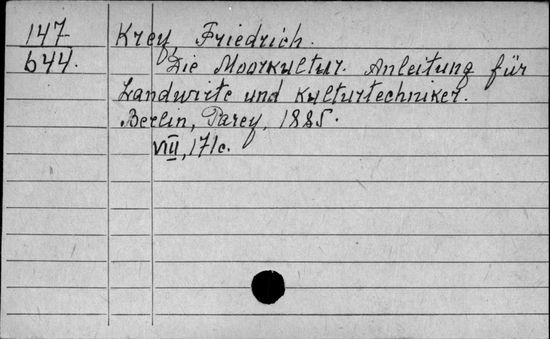 147 Krey, Friedrich.
644. Die Moorkultur. Anleitung für
Landwirte und Kulturtechniker.
Berlin, Parey, 1885.
VIII, 171c.